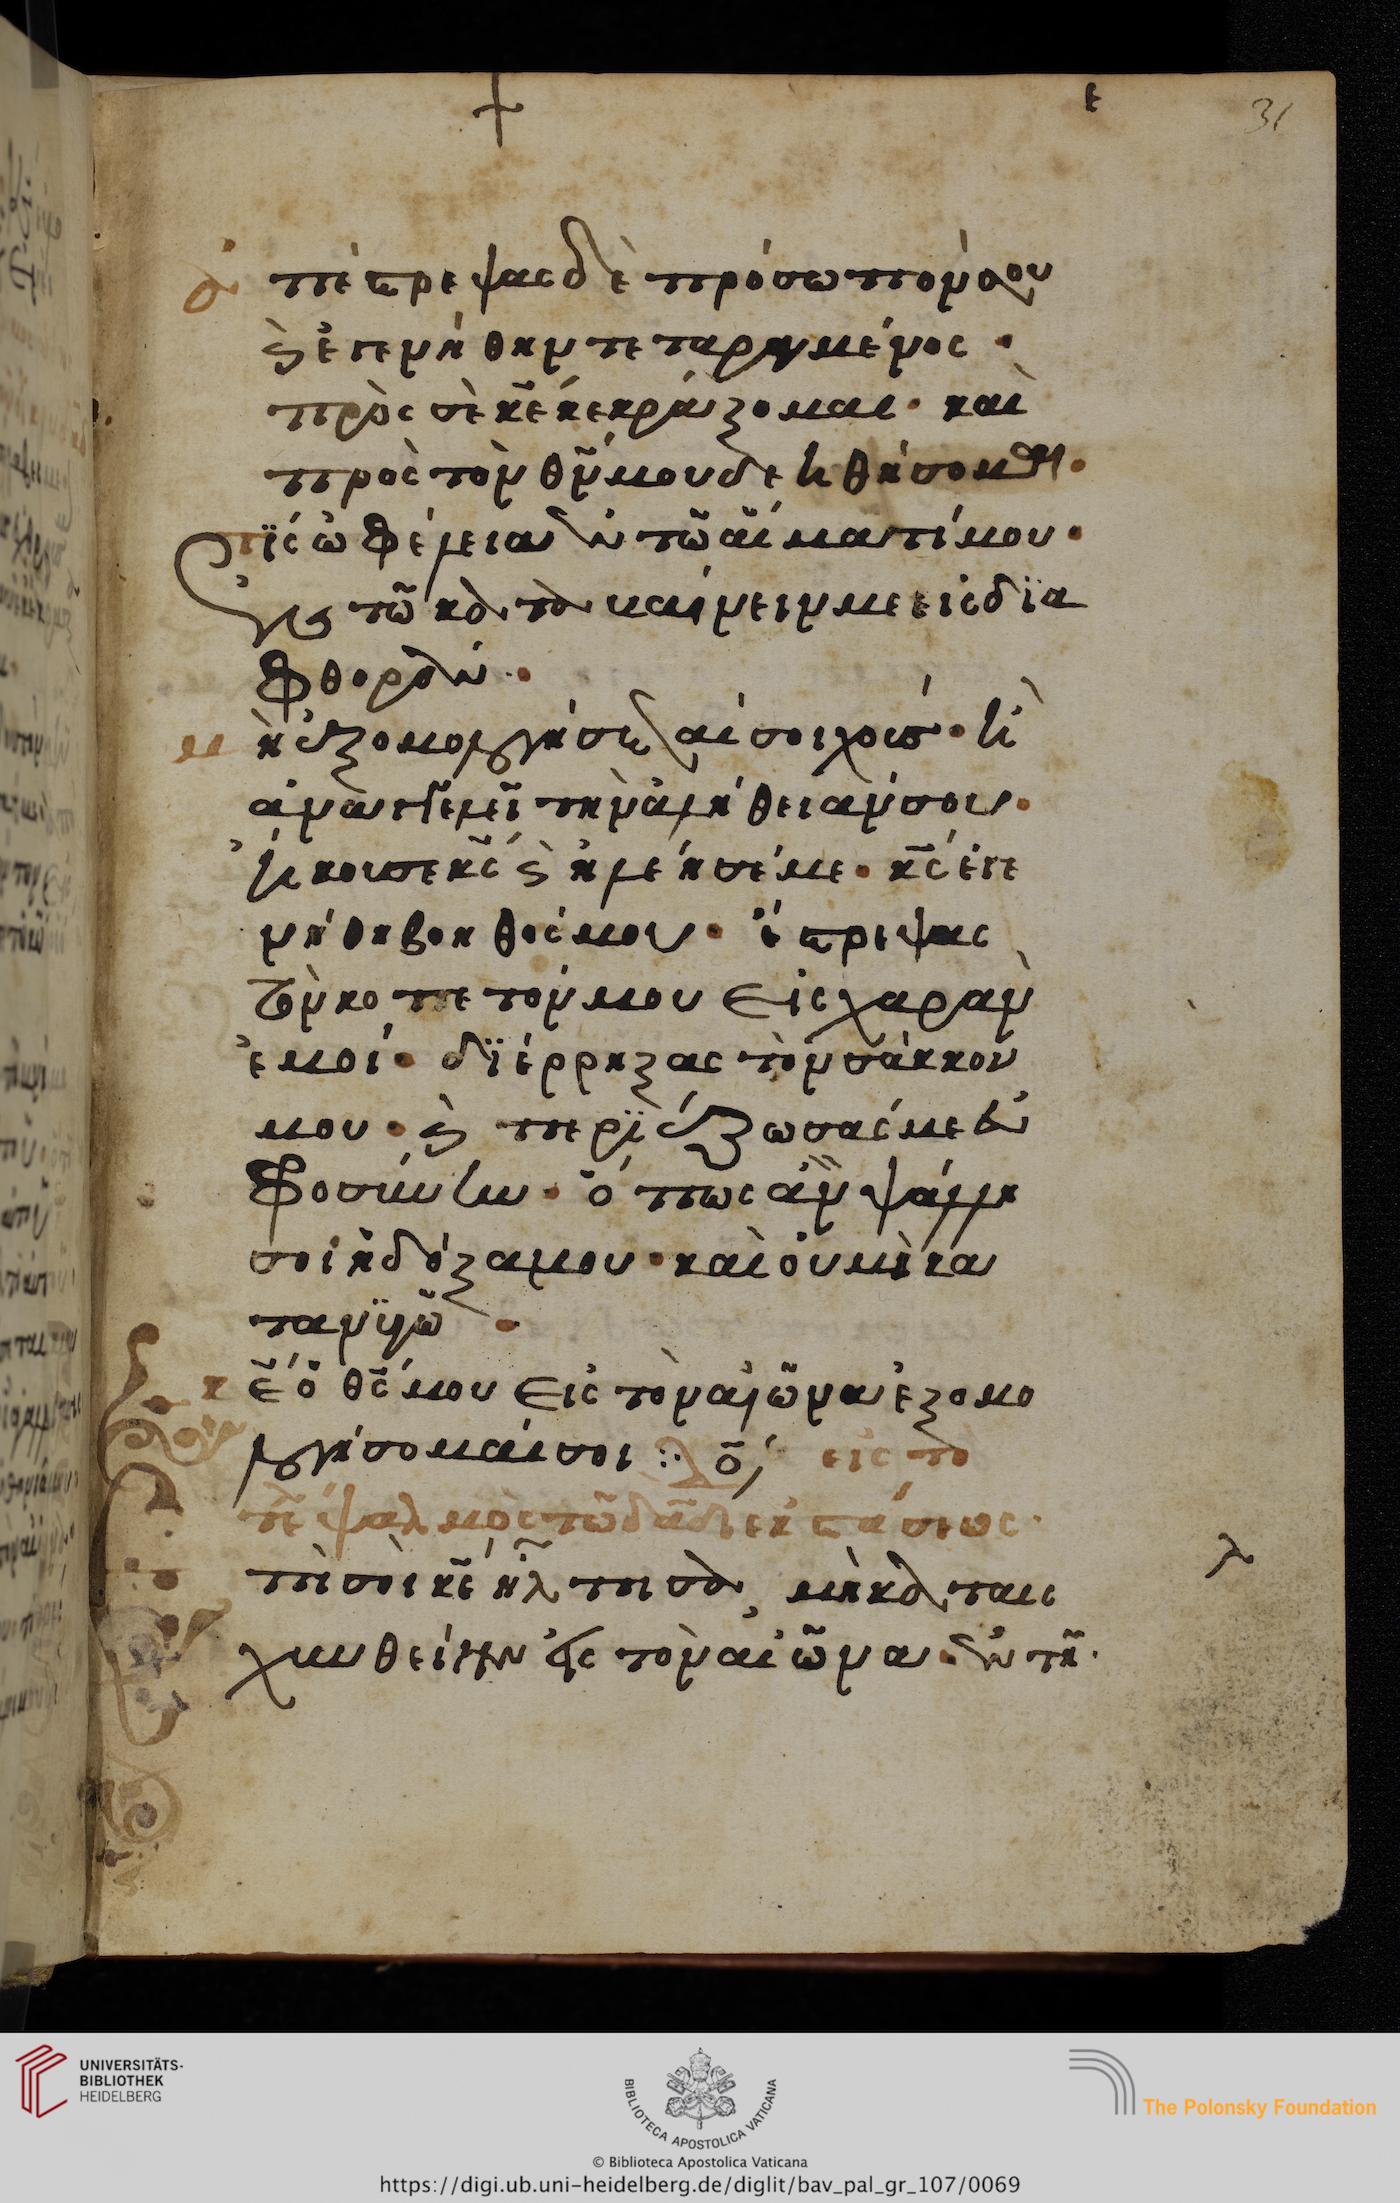 ε 31
ἀ πέστρεψας δὲ πρόσωπόν σου
ϗ ἐγενήθην τεταραγμένος ·
πρὸς σὲ κ̅ε κεκράξομαι · καὶ
πρὸς τὸν θ̅ν μου δεηθήσομαι ·
τίς ὠφέλεια ἐν τῶ αἵματί μου ·
ἐν τῶ καταβαίνειν με εἰς δϊα
φθοράν ·
μὴ ἐξομολογήσεταί σοι χοῦς · ἢ
ἀναγγελεῖ τὴν ἀλήθειάν σου ·
ἤκουσε κ̅ς ϗ ἠλέησέ με · κ̅ς ἐγε
νήθη βοηθός μου · ἔστρεψας
τὸν κοπετόν μου εἰς χαρὰν
ἐμοί · δϊέρρηξας τὸν σάκκον
μου · ϗ περϊέζωσάς με εὐ
φροσύνην · ὅπως ἂν ψάλλη
σοι ἡ δόξα μου · καὶ οὐ μὴ κα
τανϋγῶ ·
κ̅ε ὁ θ̅ς μου εἰς τὸν αἰῶνα ἐξομο
λογήσομαί σοι : εἰς τὸ
τέ ψαλμὸς τῶ δα̅δ ἐκστάσεως ·
ἐπὶ σοὶ κ̅ε ἤλπισα μὴ καταισ
χυνθείην εἰς τὸν αἰῶνα · ἐν τῆ · λ
UNIVERSITÄTS-
BIBLIOTHEK
HEIDELBERG
BIBLIOTECA APOSTOLICA VATICANA
The Polonsky Foundation
© Biblioteca Apostolica Vaticana
https://digi.ub.uni-heidelberg.de/diglit/bav_pal_gr_107/0069